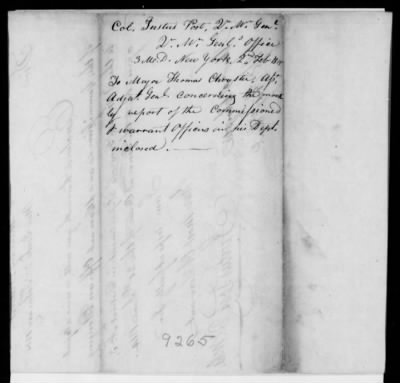 Col. Justus Post, Q. Mr. Genl.
Q. Mr. Genl's Office
3 M. D. New York 2d Feb
To Major Thomas Chrystie Asst.
Adjut. Genl. concerning the month
ly report of the Commissioned
& warrant Officers in his Dept.
inclosed. —
9265